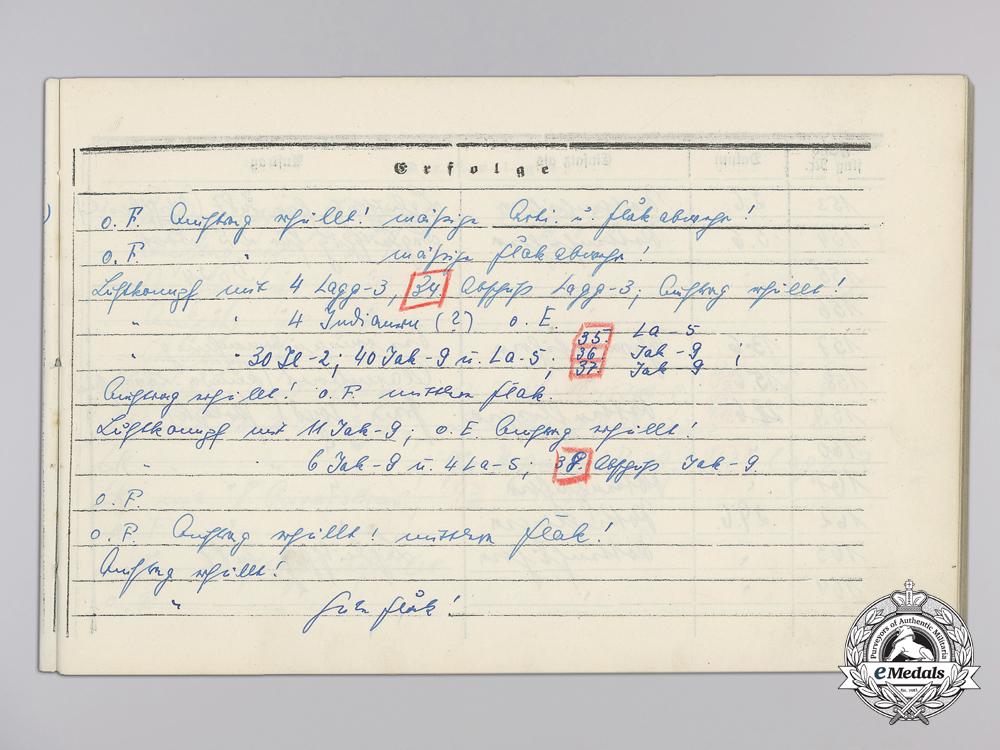 Erfolge
o. F. Auftrag erfüllt! mäßige Arti. u. Flak abwehr!
o. F. " mäßige Flak abwehr!
Luftkampf mit 4 Lagg-3, 34. Abschuß Lagg-3; Auftrag erfüllt!
" " 4 Indianern (?) o. E.
35. La-5
" " 30 Il-2; 40 Jak-9 u. La-5; 36. Jak-9 ;
37. Jak-9
Auftrag erfüllt! o. F. mittlere Flak.
Luftkampf mit 11 Jak-9; o. E. Auftrag erfüllt!
" " 6 Jak-9 u. 4 La-5; 38. Abschuß Jak-9.
o. F.
o. F. Auftrag erfüllt! mittlere Flak!
Auftrag erfüllt!
" Gute Flak!
Purveyors of Authentic Militaria
eMedals